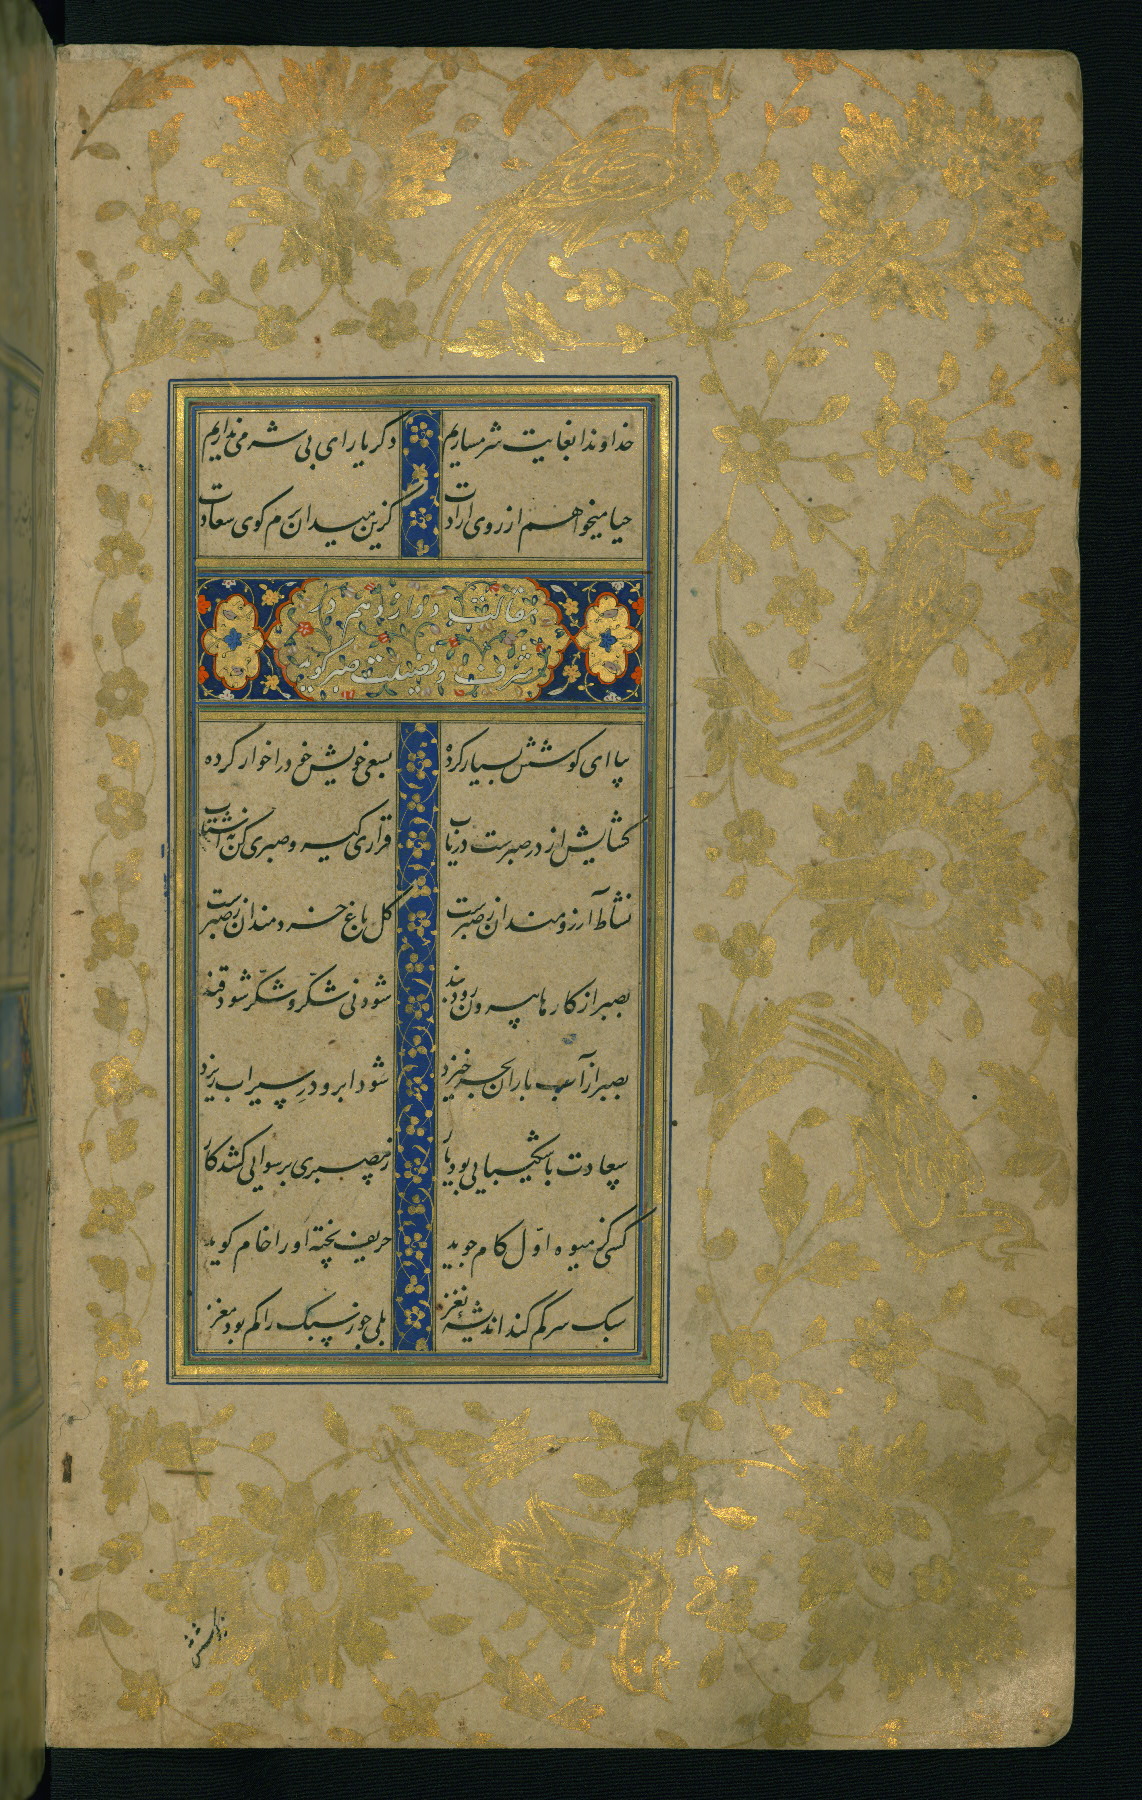 خداوندا بغایت شرمساریم دکر یارای بی شرمی نداریم
حیا میخواهم از روی ارادت کزین میدان برم کوی سعادت
مقالت دوازدهم در
شرف و فضیلت صبر کوید
بیا ای کوشش بسیار کرده بسعی خویش خود را خوار کرده
کشایش از در صبرست دریاب قراری کیر و صبری کن به اشتاب
نشاط آرزومندان ز صبرست کل باغ خردمندان ز صبرست
بصبر از کارها بیرون رود بند شود نی شکّر و شکّر شود قند
بصبر از آب باران بحر خیزد شود ابر و در سیراب ریزد
سعادت با شکیبایی بود یار ز بیصبری برسوایی کشد کار
کسی کز میوه اوّل کام جوید حریف پخته او را خام کوید
سبک سر کم کند اندیشه نغز بلی جوز سبک را کم بود مغز